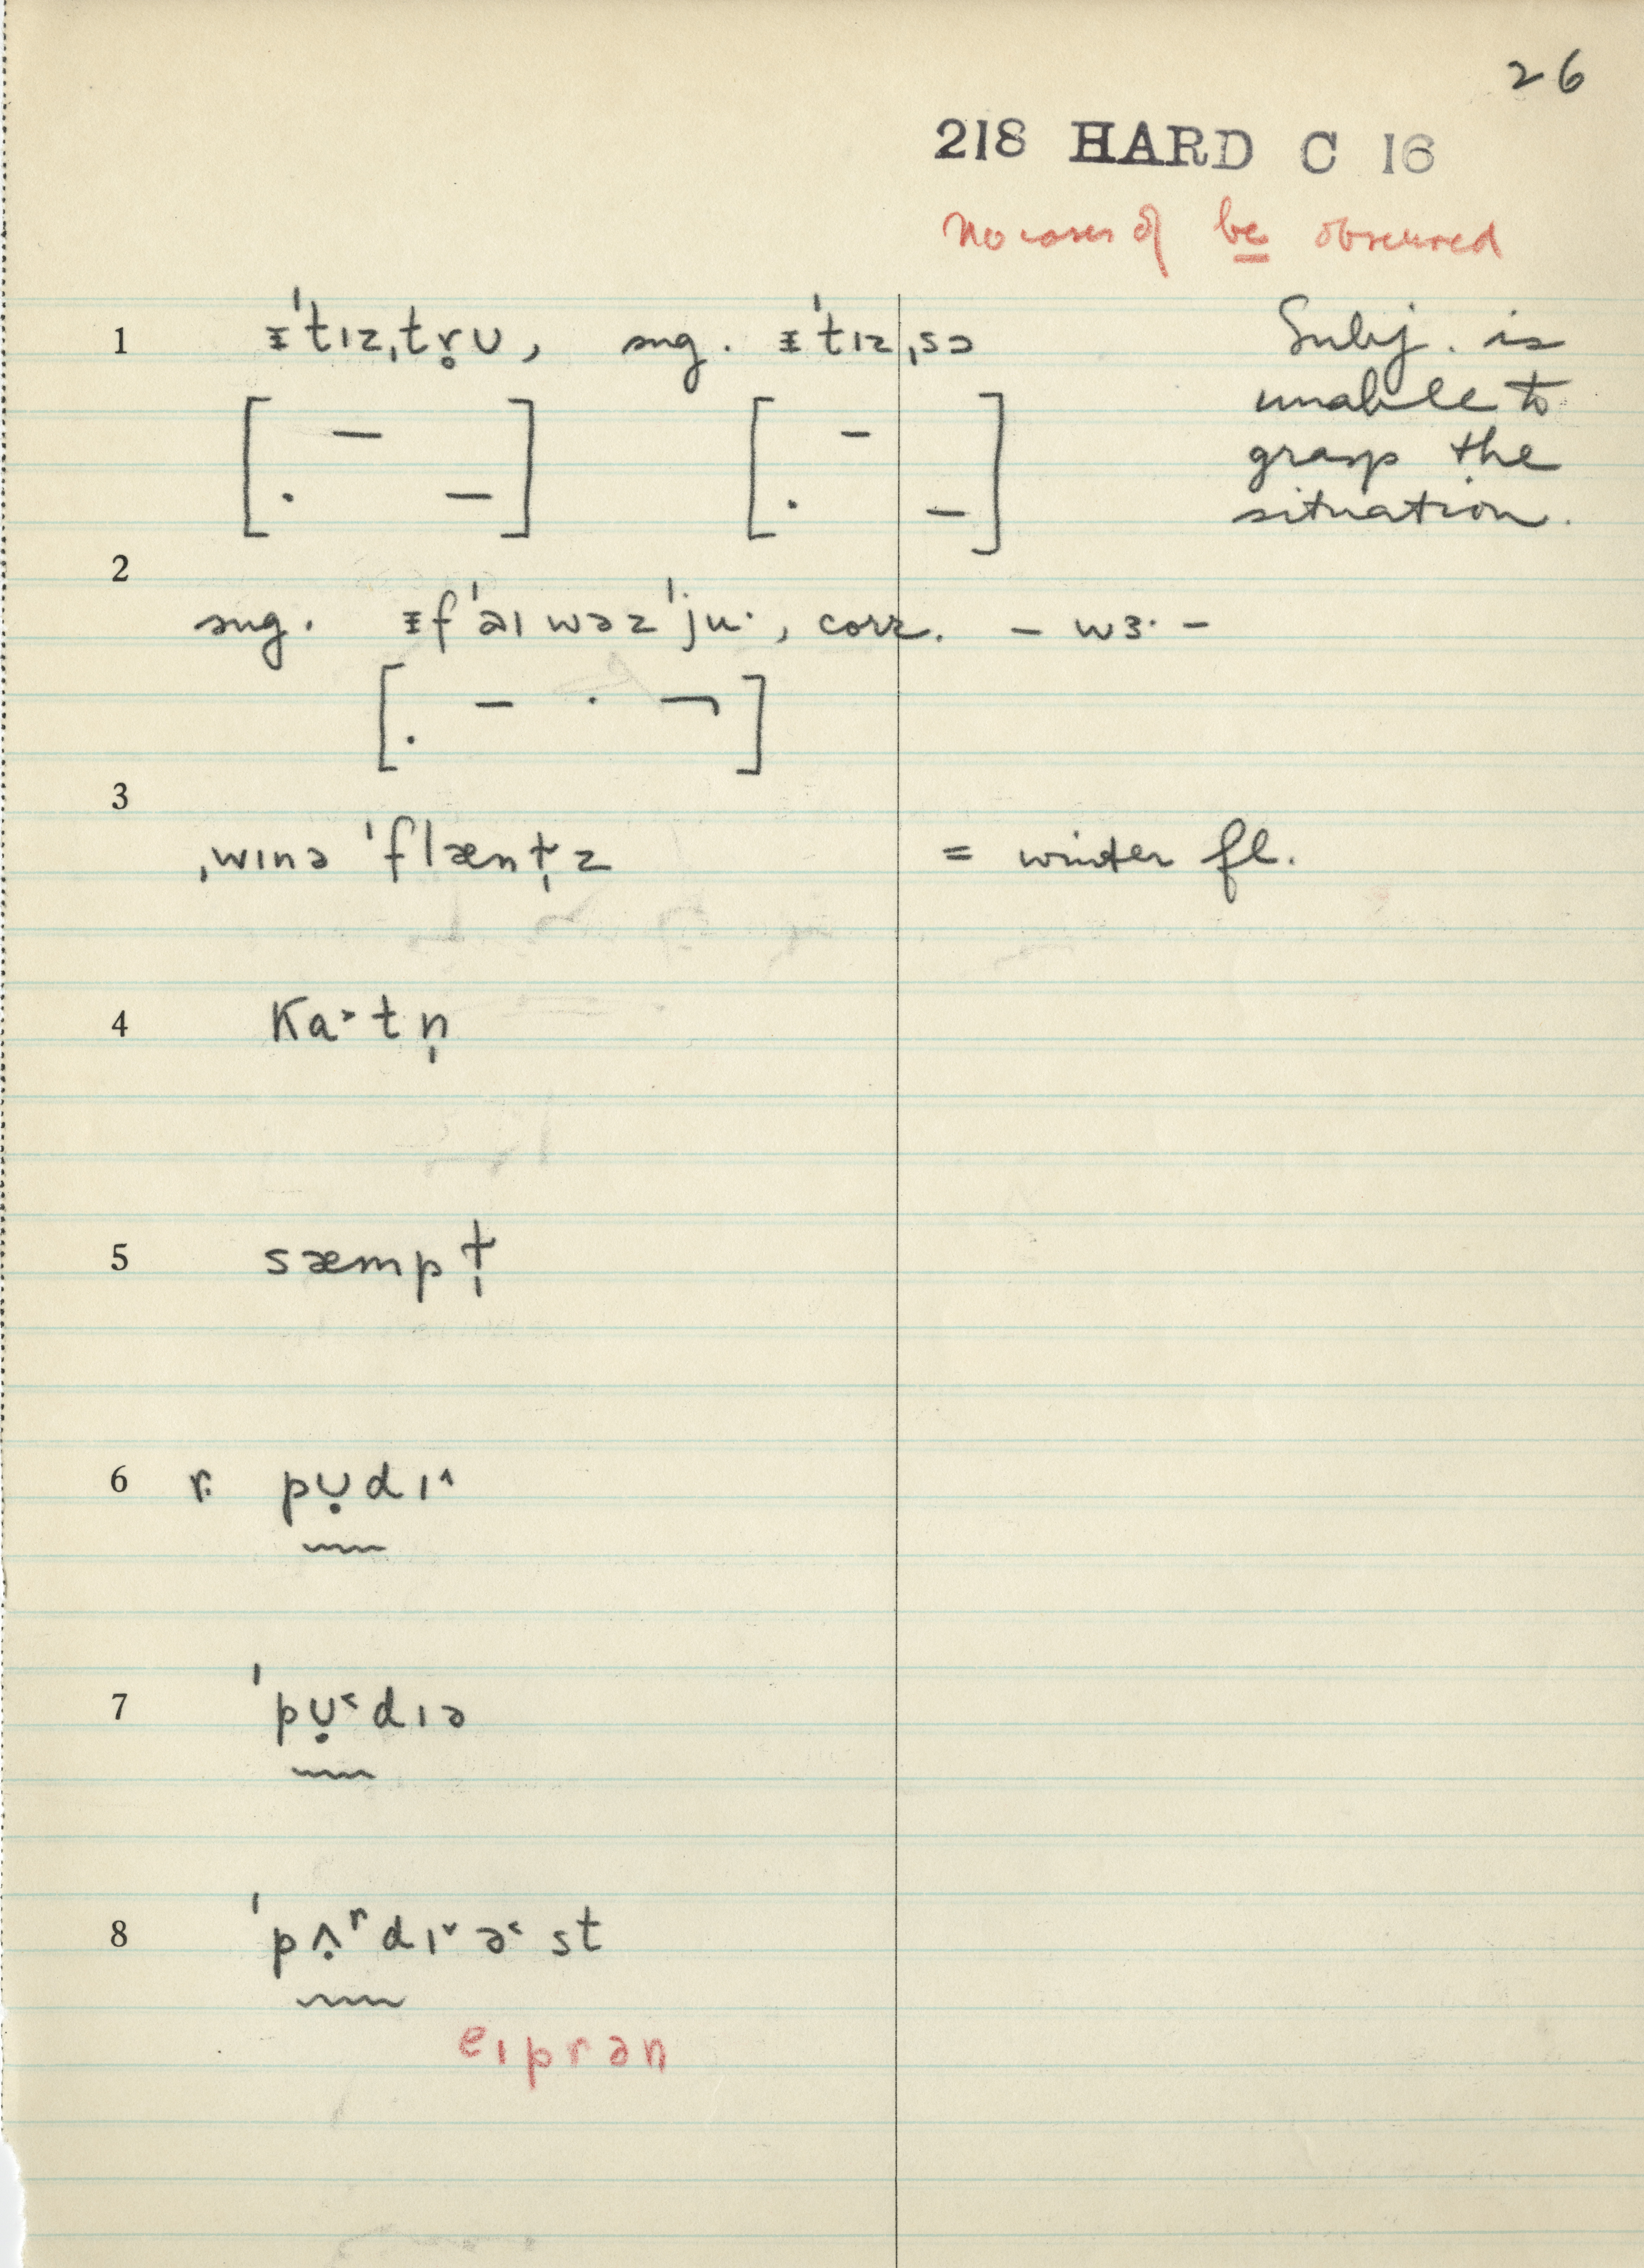 26
218 HARD C 16
No cases of be observed
1 ᵻ'tɪz,tr̥ʊ, sug. ᵻ'tɪz,sɔ
Subj. is
unable to
grasp the
situation.
2
sug. ᵻf'əɪ wəz'ju·, corr. – wɜ· –
3
,wɪnə 'flænt̬̩z = winter fl.
4 Ka˃·tn̩
5 sæmpt̬̩
6 r: pʊ̣dɪ˄
7 'pʊ̣˂dɪə
8 'pʌ̣ʳdɪ˅ə˂st
eɪprən